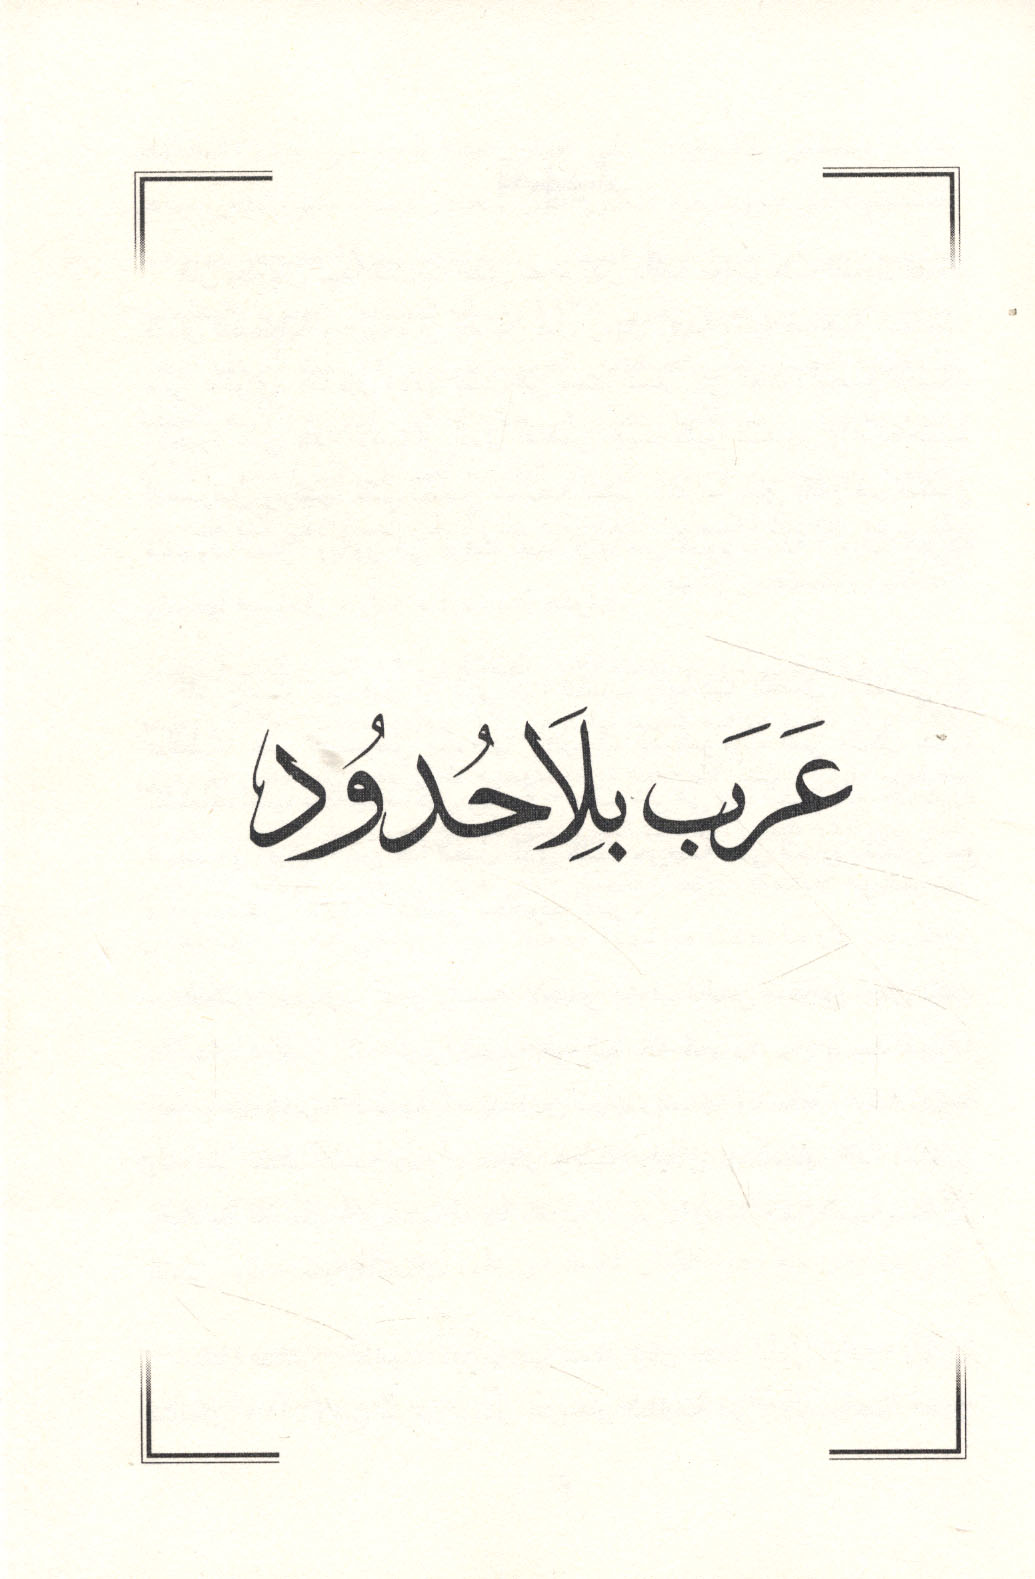 عَرَب بِلَا حُدُود